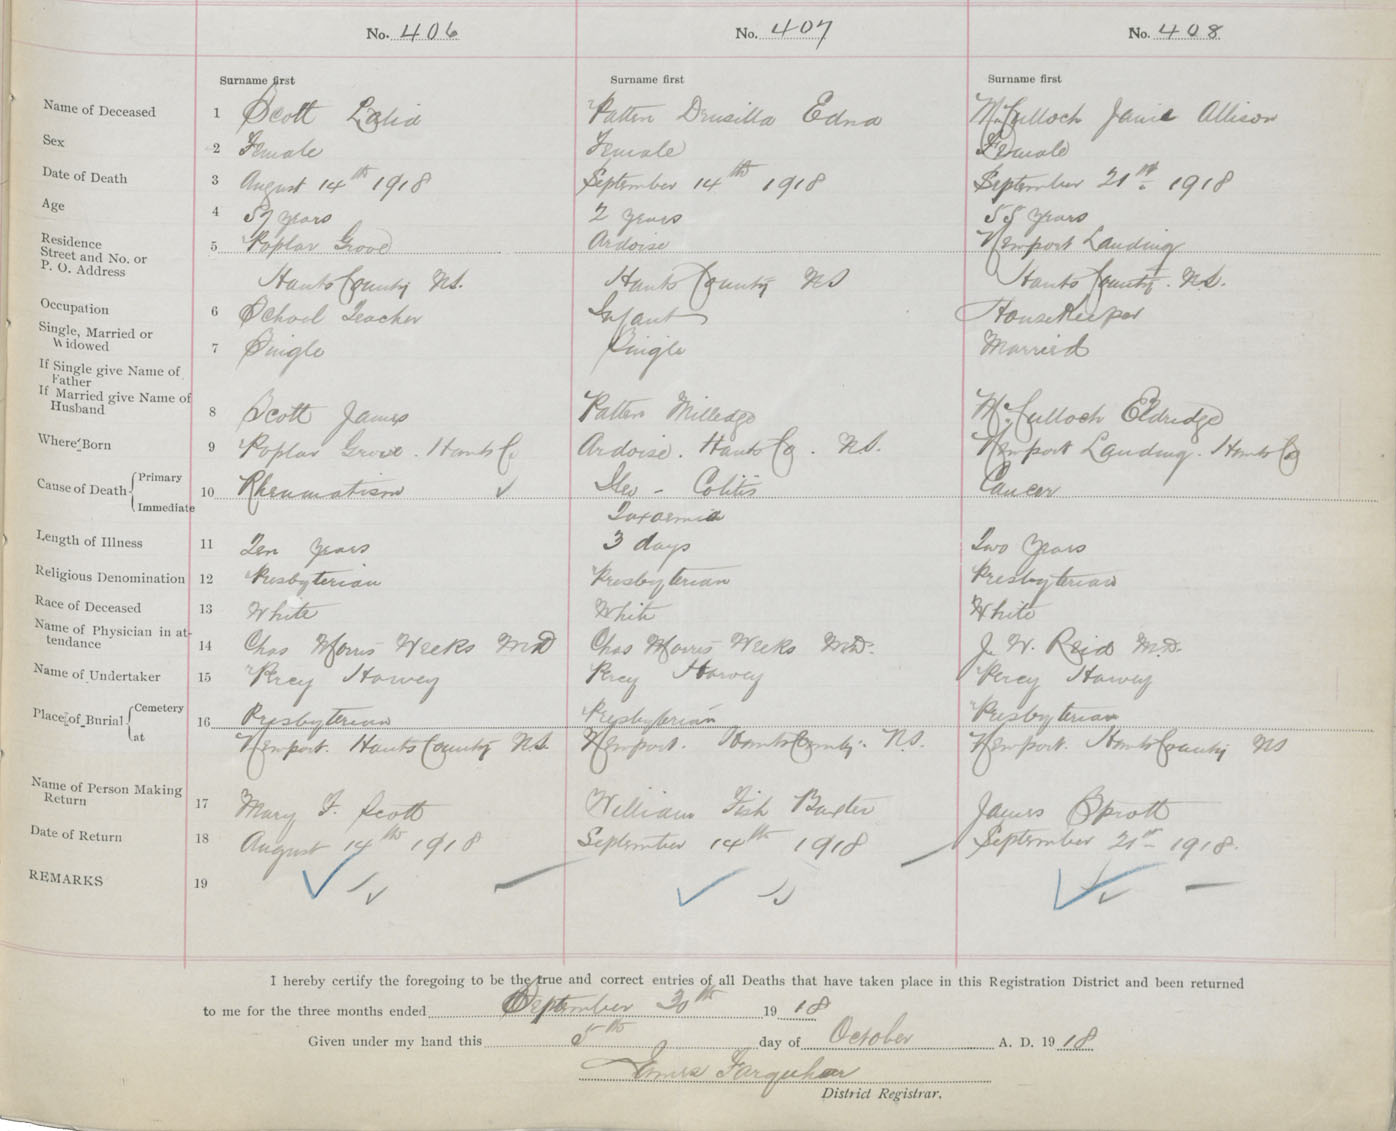 No. 406 No. 407 No. 408
Surname first Surname first Surname first
Name of Deceased 1 Scott Lalia Patten Drusilla Edna McCulloch Janie Allison
Sex 2 Female Female Female
Date of Death 3 August 14th 1918 September 14th 1918 September 21st 1918
Age 4 57 years 2 years 55 years
Residence Street and No. or P. O. Address 5 Poplar Grove Ardoise Newport Landing
Hants County N.S. Hants County NS Hants County. N.S.
Occupation 6 School Teacher Infant HouseKeeper
Single, Married or Widowed 7 Single Single Married
If Single give Name of Father
If Married give Name of Husband 8 Scott James Patten Milledge McCulloch Eldridge
Where Born 9 Poplar Grove. Hants Co Ardoise. Hants Co. N.S. Newport Landing. Hants Co
Cause of Death Primary 10 Rheumatism Ileo - Colitis Cancer
Immediate Toxaemia
Length of Illness 11 Ten years 3 days Two years
Religious Denomination 12 Presbyterian Presbyterian Presbyterian
Race of Deceased 13 White White White
Name of Physician in attendance 14 Chas Morris Weeks M.D Chas Morris Weeks M.D. J. W. Reid M.D.
Name of Undertaker 15 Percy Harvey Percy Harvey Percy Harvey
Place of Burial Cemetery 16 Presbyterian Presbyterian Presbyterian
at Newport. Hants County N.S. Newport. Hants County. N.S. Newport. Hants County NS
Name of Person Making Return 17 Mary F. Scott William Fish Baxter James Sprott
Date of Return 18 August 14th 1918 September 14th 1918 September 21st 1918.
REMARKS 19
I hereby certify the foregoing to be the true and correct entries of all Deaths that have taken place in this Registration District and been returned
to me for the three months ended September 30th 1918
Given under my hand this 5th day of October A. D. 1918
James Farquhar
District Registrar.